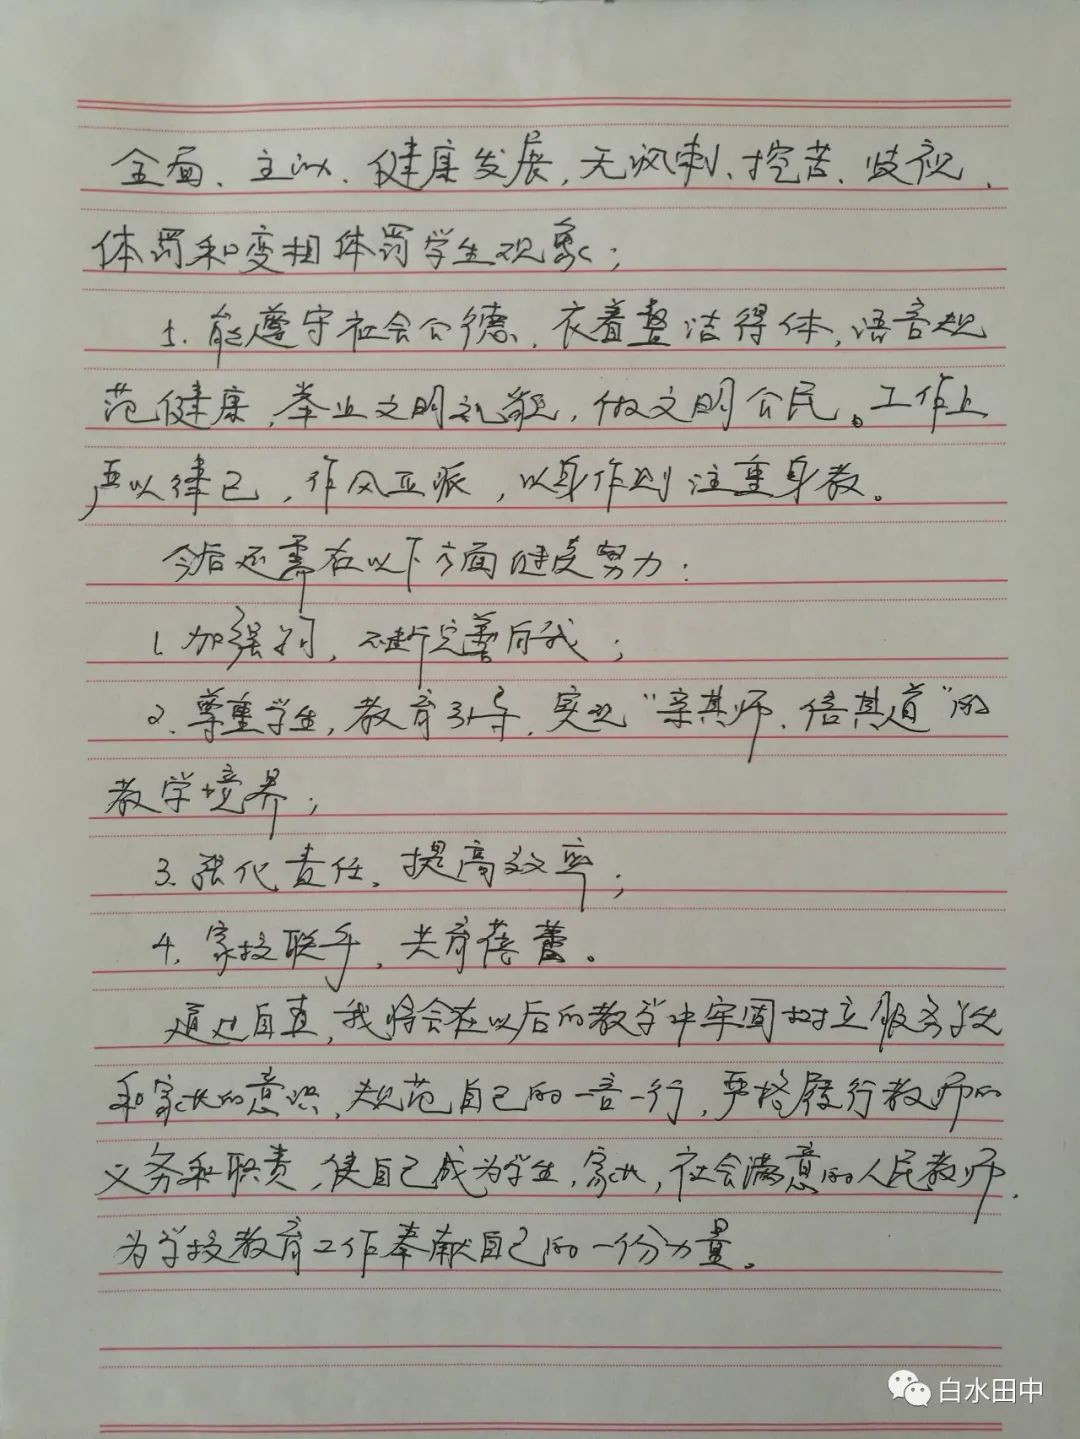 全面、主动、健康发展,无讽刺、挖苦、歧视、
体罚和变相体罚学生现象;
5.能遵守社会公德,衣着整洁得体,语言规
范健康,举止文明礼貌,做文明公民。工作上
严以律己,作风正派,以身作则注重身教。
今后还需在以下方面继续努力:
1.加强学习,不断完善自我;
2.尊重学生,教育引导,实现“亲其师、信其道”的
教学境界;
3.强化责任,提高效率;
4.家校联手,共育蓓蕾。
通过自查,我将会在以后的教学中牢固树立服务学生
和家长的意识,规范自己的一言一行,严格履行教师的
义务和职责,使自己成为学生,家长,社会满意的人民教师,
为学校教育工作奉献自己的一份力量。
白水田中